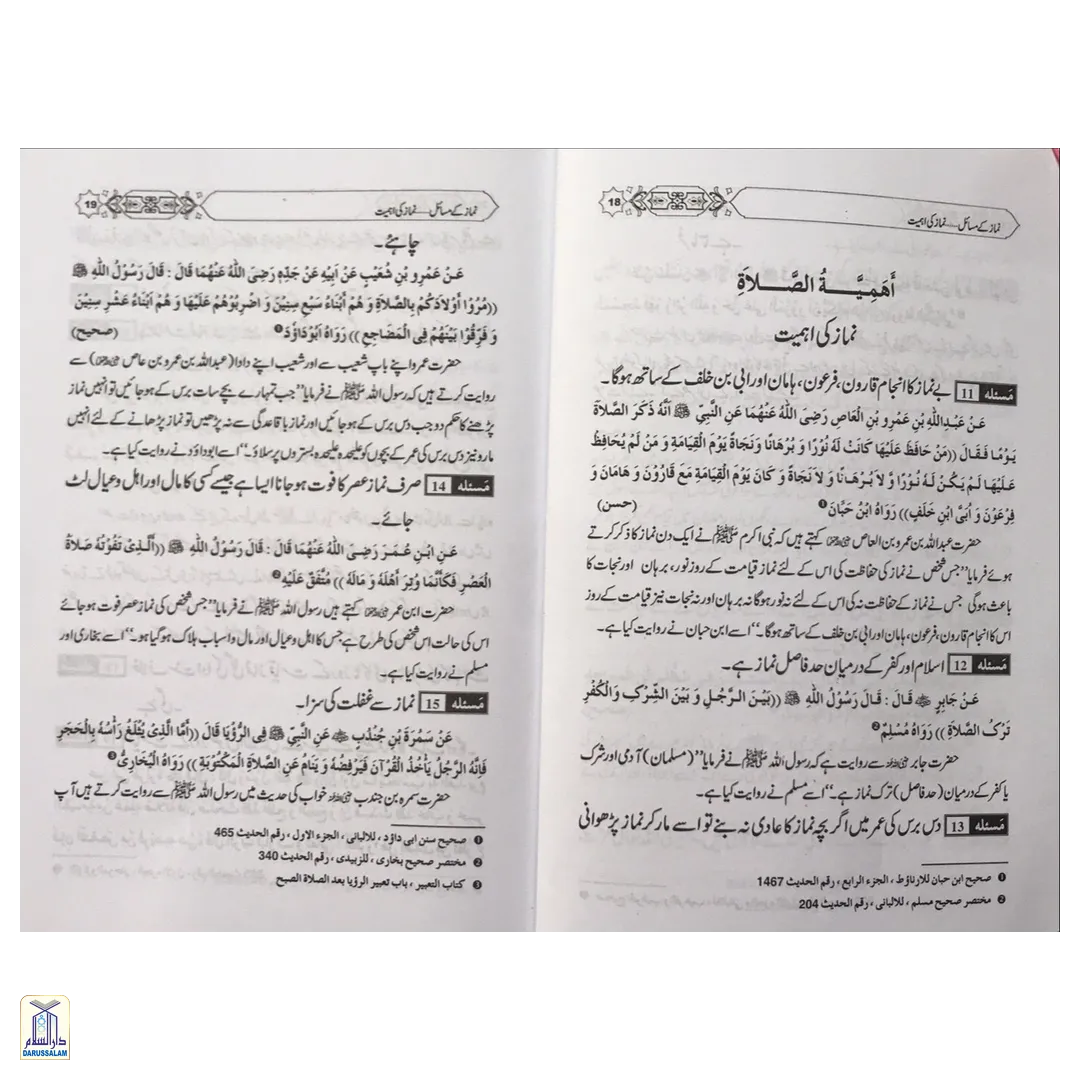 نماز کے مسائل ..... نماز کی اہمیت
18
أَهَمِيَّــــةُ الصَّــــلاَةِ
نماز کی اہمیت
مَسئله 11 بے نماز کا انجام قارون، فرعون، ہامان اور ابی بن خلف کے ساتھ ہوگا۔
عَنْ عَبْدِاللّٰهِ بْنِ عَمْرِو بْنِ الْعَاصِ رَضِيَ اللّٰهُ عَنْهُمَا عَنِ النَّبِيِّ ﷺ أَنَّهُ ذَكَرَ الصَّلاَةَ
يَوْمًا فَقَالَ ((مَنْ حَافَظَ عَلَيْهَا كَانَتْ لَهُ نُوْرًا وَ بُرْهَانًا وَنَجَاةً يَوْمَ الْقِيَامَةِ وَ مَنْ لَمْ يُحَافِظْ
عَلَيْهَا لَمْ يَكُنْ لَهُ نُوْرًا وَّ لاَ بُرْهَانًا وَ لاَ نَجَاةً وَ كَانَ يَوْمَ الْقِيَامَةِ مَعَ قَارُوْنَ وَ هَامَانَ وَ
فِرْعَوْنَ وَ أُبَيِّ ابْنِ خَلْفٍ)) رَوَاهُ ابْنُ حَبَّانَ❶ (حسن)
حضرت عبداللہ بن عمرو بن العاص رضی اللہ عنہ کہتے ہیں کہ نبی اکرم ﷺ نے ایک دن نماز کا ذکر کرتے
ہوئے فرمایا ”جس شخص نے نماز کی حفاظت کی اس کے لئے نماز قیامت کے روز نور، برہان اور نجات کا
باعث ہوگی جس نے نماز کے حفاظت نہ کی اس کے لئے نہ نور ہوگا نہ برہان اور نہ نجات نیز قیامت کے روز
اس کا انجام قارون، فرعون، ہامان اور ابی بن خلف کے ساتھ ہوگا۔“ اسے ابن حبان نے روایت کیا ہے۔
مَسئله 12 اسلام اور کفر کے درمیان حد فاصل نماز ہے۔
عَنْ جَابِرٍ ؓ قَالَ : قَالَ رَسُوْلُ اللّٰهِ ﷺ ((بَيْنَ الرَّجُلِ وَ بَيْنَ الشِّرْكِ وَالْكُفْرِ
تَرْكُ الصَّلاَةِ )) رَوَاهُ مُسْلِمٌ❷
حضرت جابر رضی اللہ عنہ سے روایت ہے کہ رسول اللہ ﷺ نے فرمایا ”(مسلمان) آدمی اور شرک
یا کفر کے درمیان (حد فاصل) ترک نماز ہے۔“ اسے مسلم نے روایت کیا ہے۔
مَسئله 13 دس برس کی عمر میں اگر بچہ نماز کا عادی نہ بنے تو اسے مار کر نماز پڑھوانی
❶ صحیح ابن حبان للارناؤط ، الجزء الرابع ، رقم الحدیث 1467
❷ مختصر صحیح مسلم ، للالبانی ، رقم الحدیث 204
نماز کے مسائل ..... نماز کی اہمیت
19
چاہئے۔
عَنْ عَمْرِو بْنِ شُعَيْبٍ عَنْ أَبِيْهِ عَنْ جَدِّهٖ رَضِيَ اللّٰهُ عَنْهُمَا قَالَ : قَالَ رَسُوْلُ اللّٰهِ ﷺ
((مُرُوْا أَوْلاَدَكُمْ بِالصَّلاَةِ وَ هُمْ أَبْنَاءُ سَبْعِ سِنِيْنَ وَ اضْرِبُوْهُمْ عَلَيْهَا وَ هُمْ أَبْنَاءُ عَشْرِ سِنِيْنَ
وَ فَرِّقُوْا بَيْنَهُمْ فِى الْمَضَاجِعِ )) رَوَاهُ أَبُوْدَاوُدَ❶ (صحیح)
حضرت عمرو اپنے باپ شعیب سے اور شعیب اپنے دادا (عبداللہ بن عمرو بن عاص رضی اللہ عنہ) سے
روایت کرتے ہیں کہ رسول اللہ ﷺ نے فرمایا ”جب تمہارے بچے سات برس کے ہو جائیں تو انہیں نماز
پڑھنے کا حکم دو جب دس برس کے ہو جائیں اور نماز باقاعدگی سے نہ پڑھیں تو نماز پڑھانے کے لئے انہیں
مارو نیز دس برس کی عمر کے بچوں کو علیحدہ علیحدہ بستروں پر سلاؤ۔“ اسے ابوداؤد نے روایت کیا ہے۔
مَسئله 14 صرف نماز عصر کا فوت ہو جانا ایسا ہے جیسے کسی کا مال اور اہل و عیال لٹ
جائے۔
عَنِ ابْنِ عُمَرَ رَضِيَ اللّٰهُ عَنْهُمَا قَالَ : قَالَ رَسُوْلُ اللّٰهِ ﷺ ((أَلَّذِىْ تَفُوْتُهُ صَلاَةُ
الْعَصْرِ فَكَأَنَّمَا وُتِرَ أَهْلَهُ وَ مَالَهُ )) مُتَّفَقٌ عَلَيْهِ❷
حضرت ابن عمر رضی اللہ عنہ کہتے ہیں رسول اللہ ﷺ نے فرمایا ”جس شخص کی نماز عصر فوت ہو جائے
اس کی حالت اس شخص کی طرح ہے جس کا اہل و عیال اور مال و اسباب ہلاک ہو گیا ہو۔“ اسے بخاری اور
مسلم نے روایت کیا ہے۔
مَسئله 15 نماز سے غفلت کی سزا۔
عَنْ سَمُرَةَ بْنِ جُنْدُبٍ ؓ عَنِ النَّبِيِّ ﷺ فِى الرُّؤْيَا قَالَ ((أَمَّا الَّذِىْ يُثْلَغُ رَأْسُهُ بِالْحَجَرِ
فَإِنَّهُ الرَّجُلُ يَأْخُذُ الْقُرْآنَ فَيَرْفِضُهُ وَ يَنَامُ عَنِ الصَّلاَةِ الْمَكْتُوْبَةِ )) رَوَاهُ الْبُخَارِىُّ❸
حضرت سمرہ بن جندب رضی اللہ عنہ خواب کی حدیث میں رسول اللہ ﷺ سے روایت کرتے ہیں آپ
❶ صحیح سنن ابی داؤد ، للالبانی ، الجزء الاول ، رقم الحدیث 465
❷ مختصر صحیح بخاری ، للزبیدی ، رقم الحدیث 340
❸ کتاب التعبیر ، باب تعبیر الرؤیا بعد الصلاة الصبح
دارالسلام
DARUSSALAM